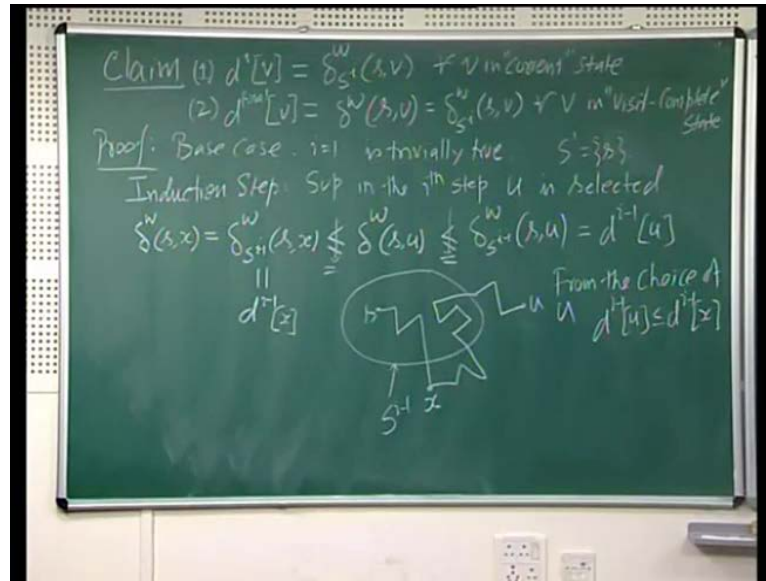 Claim (1) dⁱ[v] = δ^W_{Sⁱ}(s,v) ∀ v in "current" state
(2) d^{final}[v] = δ^W(s,v) = δ^W_{Sⁱ}(s,v) ∀ v in "visit-complete" state
Proof: Base Case. i=1 is trivially true. S¹={s}
Induction Step. Sup in the iᵗʰ step u is selected
δ^W(s,x) = δ^W_{S^{i-1}}(s,x) ≤ δ^W(s,u) ≤ δ^W_{S^{i-1}}(s,u) = d^{i-1}[u]
||
d^{i-1}[x]
From the choice of
u d^{i-1}[u] ≤ d^{i-1}[x]
s
u
S^{i-1} x